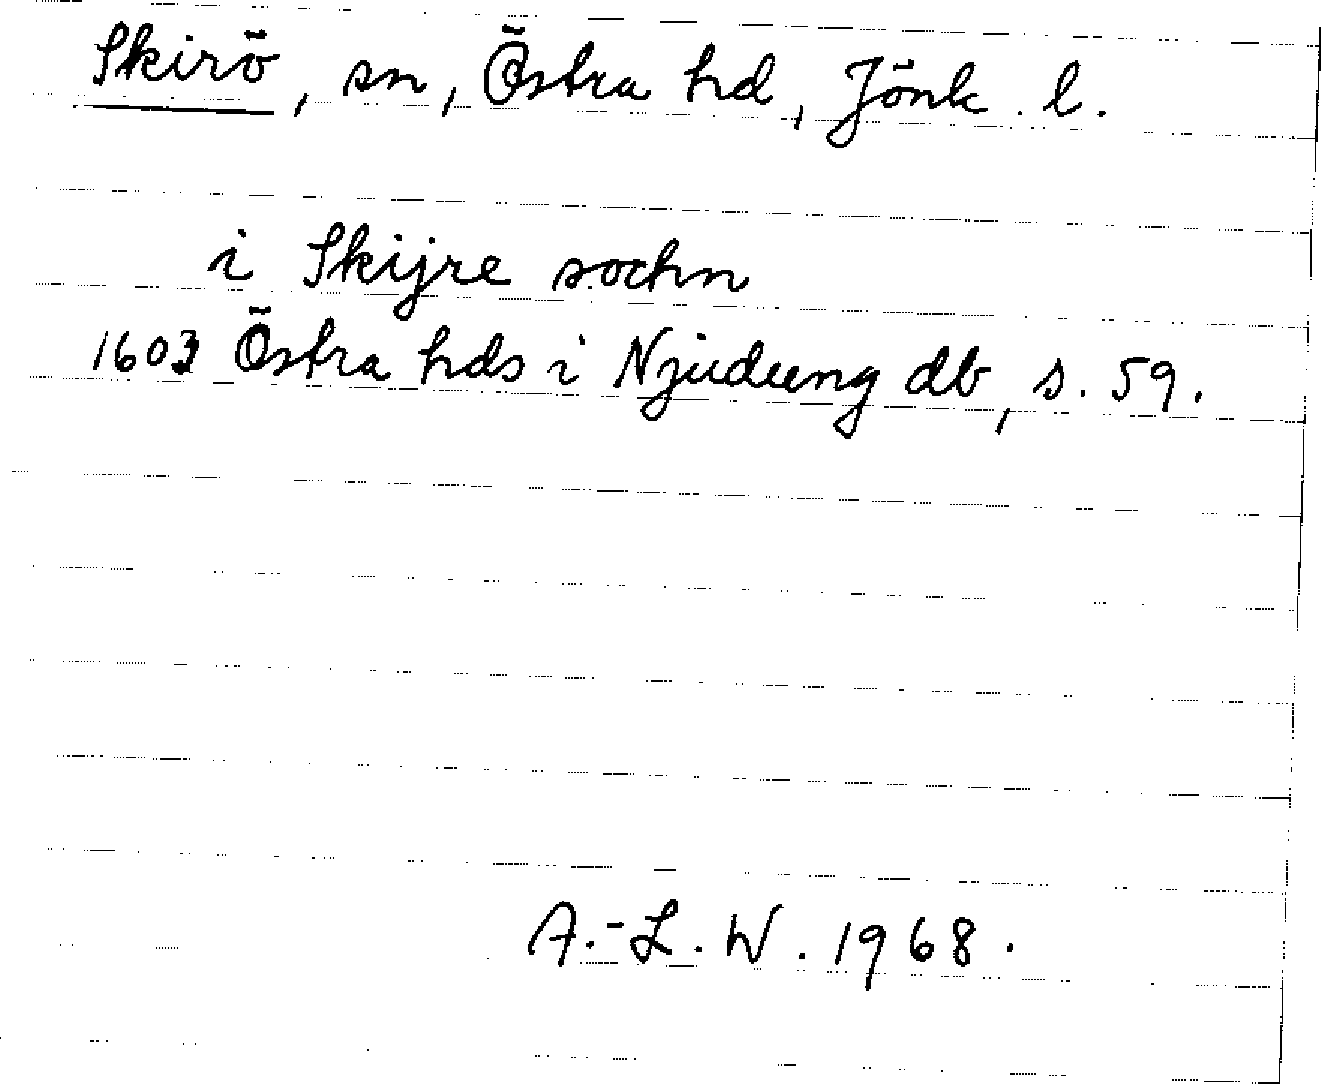 Skirö, sn, Östra hd, Jönk. l.
i Skijre sochn
1603 Östra hds i Njudung db, s. 59.
A.-L. W. 1968.